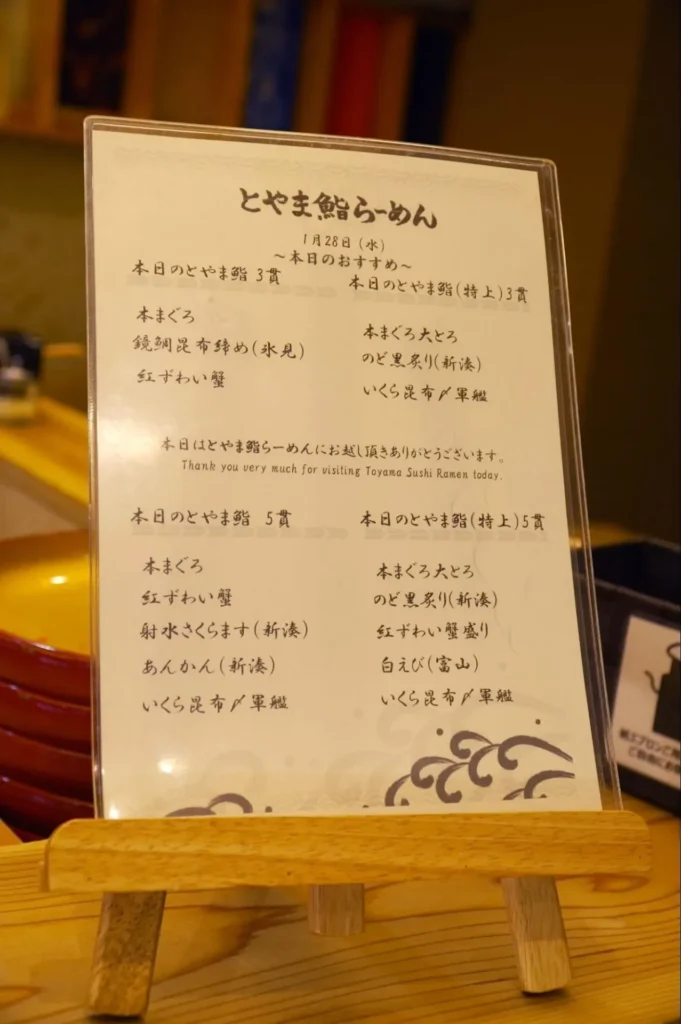 とやま鮨らーめん
1月28日(水)
～本日のおすすめ～
本日のとやま鮨 3貫
本まぐろ
鏡鯛昆布締め(氷見)
紅ずわい蟹
本日のとやま鮨(特上)3貫
本まぐろ大とろ
のど黒炙り(新湊)
いくら昆布〆軍艦
本日はとやま鮨らーめんにお越し頂きありがとうございます。
Thank you very much for visiting Toyama Sushi Ramen today.
本日のとやま鮨 5貫
本まぐろ
紅ずわい蟹
射水さくらます(新湊)
あんかん(新湊)
いくら昆布〆軍艦
本日のとやま鮨(特上)5貫
本まぐろ大とろ
のど黒炙り(新湊)
紅ずわい蟹盛り
白えび(富山)
いくら昆布〆軍艦
紙エプロンご
ご自由にお